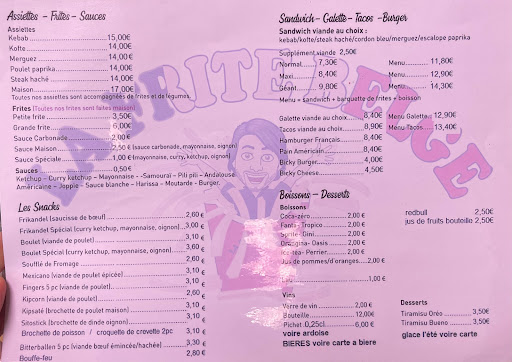 Assiettes - Frites - Sauces
Assiettes
Kebab 15,00€
Kofte 14,00€
Merguez 14,00€
Poulet paprika 14,00€
Steak haché 14,00€
Maison 17,00€
Toutes nos assiettes sont accompagnées de frites et de légumes.
Frites (Toutes nos frites sont faites maison)
Petite frite 3,50€
Grande frite 6,00€
Sauce Carbonade 2,00€
Sauce Maison 2,50€ (sauce carbonade, mayonnaise, oignon)
Sauce Spéciale 1,00€ (mayonnaise, curry, ketchup, oignon)
Sauces 0,50€
Ketchup - Curry Mayonnaise - Samouraï - Pili pili - Andalouse
Américaine - Joppie - Sauce blanche - Harissa - Moutarde - Burger.
Les Snacks
Frikandel (saucisse de bœuf) 2,60 €
Frikandel Spécial (curry ketchup, mayonnaise, oignon) 3,00 €
Boulet (viande de poulet) 3,10 €
Boulet Spécial (curry ketchup, mayonnaise, oignon) 3,60 €
Soufflé de Fromage 2,60 €
Mexicano (viande de poulet épicée) 3,10 €
Fingers 5 pc (viande de poulet) 3,10 €
Kipcorn (viande de poulet) 2,60 €
Kipsaté (brochette de poulet maison)
Sitostick (brochette de dinde oignon)
Brochette de poisson / croquette de crevette 2pc 3,10 €
Bitterballen 5 pc (viande de bœuf émincée/hachée) 3,30 €
Bouffe-feu 2,80 €
Sandwich - Galette - Tacos - Burger
Sandwich viande au choix :
kebab/kofte/steak haché/cordon bleu/merguez/escalope paprika
Supplément viande 2,50€
Normal 7,30€ Menu 11,80€
Maxi 8,40€ Menu 12,90€
Géant 9,80€ Menu 14,30€
Menu = sandwich + barquette de frites + boisson
Galette viande au choix 8,40€ Menu Galette 12,90€
Tacos viande au choix 8,90€ Menu Tacos 13,40€
Hamburger Français 8,40€
Pain Américain 8,40€
Bicky Burger 4,00€
Bicky Cheese 4,50€
Boissons - Desserts
Boissons
Coca-zéro 2,00 €
Fanta-Tropico 2,00 €
Sprite-Dini 2,00 €
Orangina-Oasis 2,00 €
Ice-tea-Perrier 2,00€
Jus de pommes/d'oranges 2,00€
1,00€
Vins
Verre de vin 2,00€
Bouteille 12,00€
Pichet 0,25cl 6,00 €
voire ardoise
BIERES voire carte a biere
redbull 2,50€
jus de fruits bouteille 2,50€
Desserts
Tiramisu Oréo 3,50€
Tiramisu Bueno 3,50€
glace l'été voire carte
LA FRITE BELGE